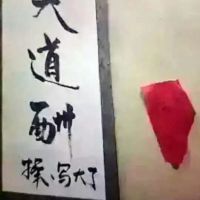 天道酬
操,写大了